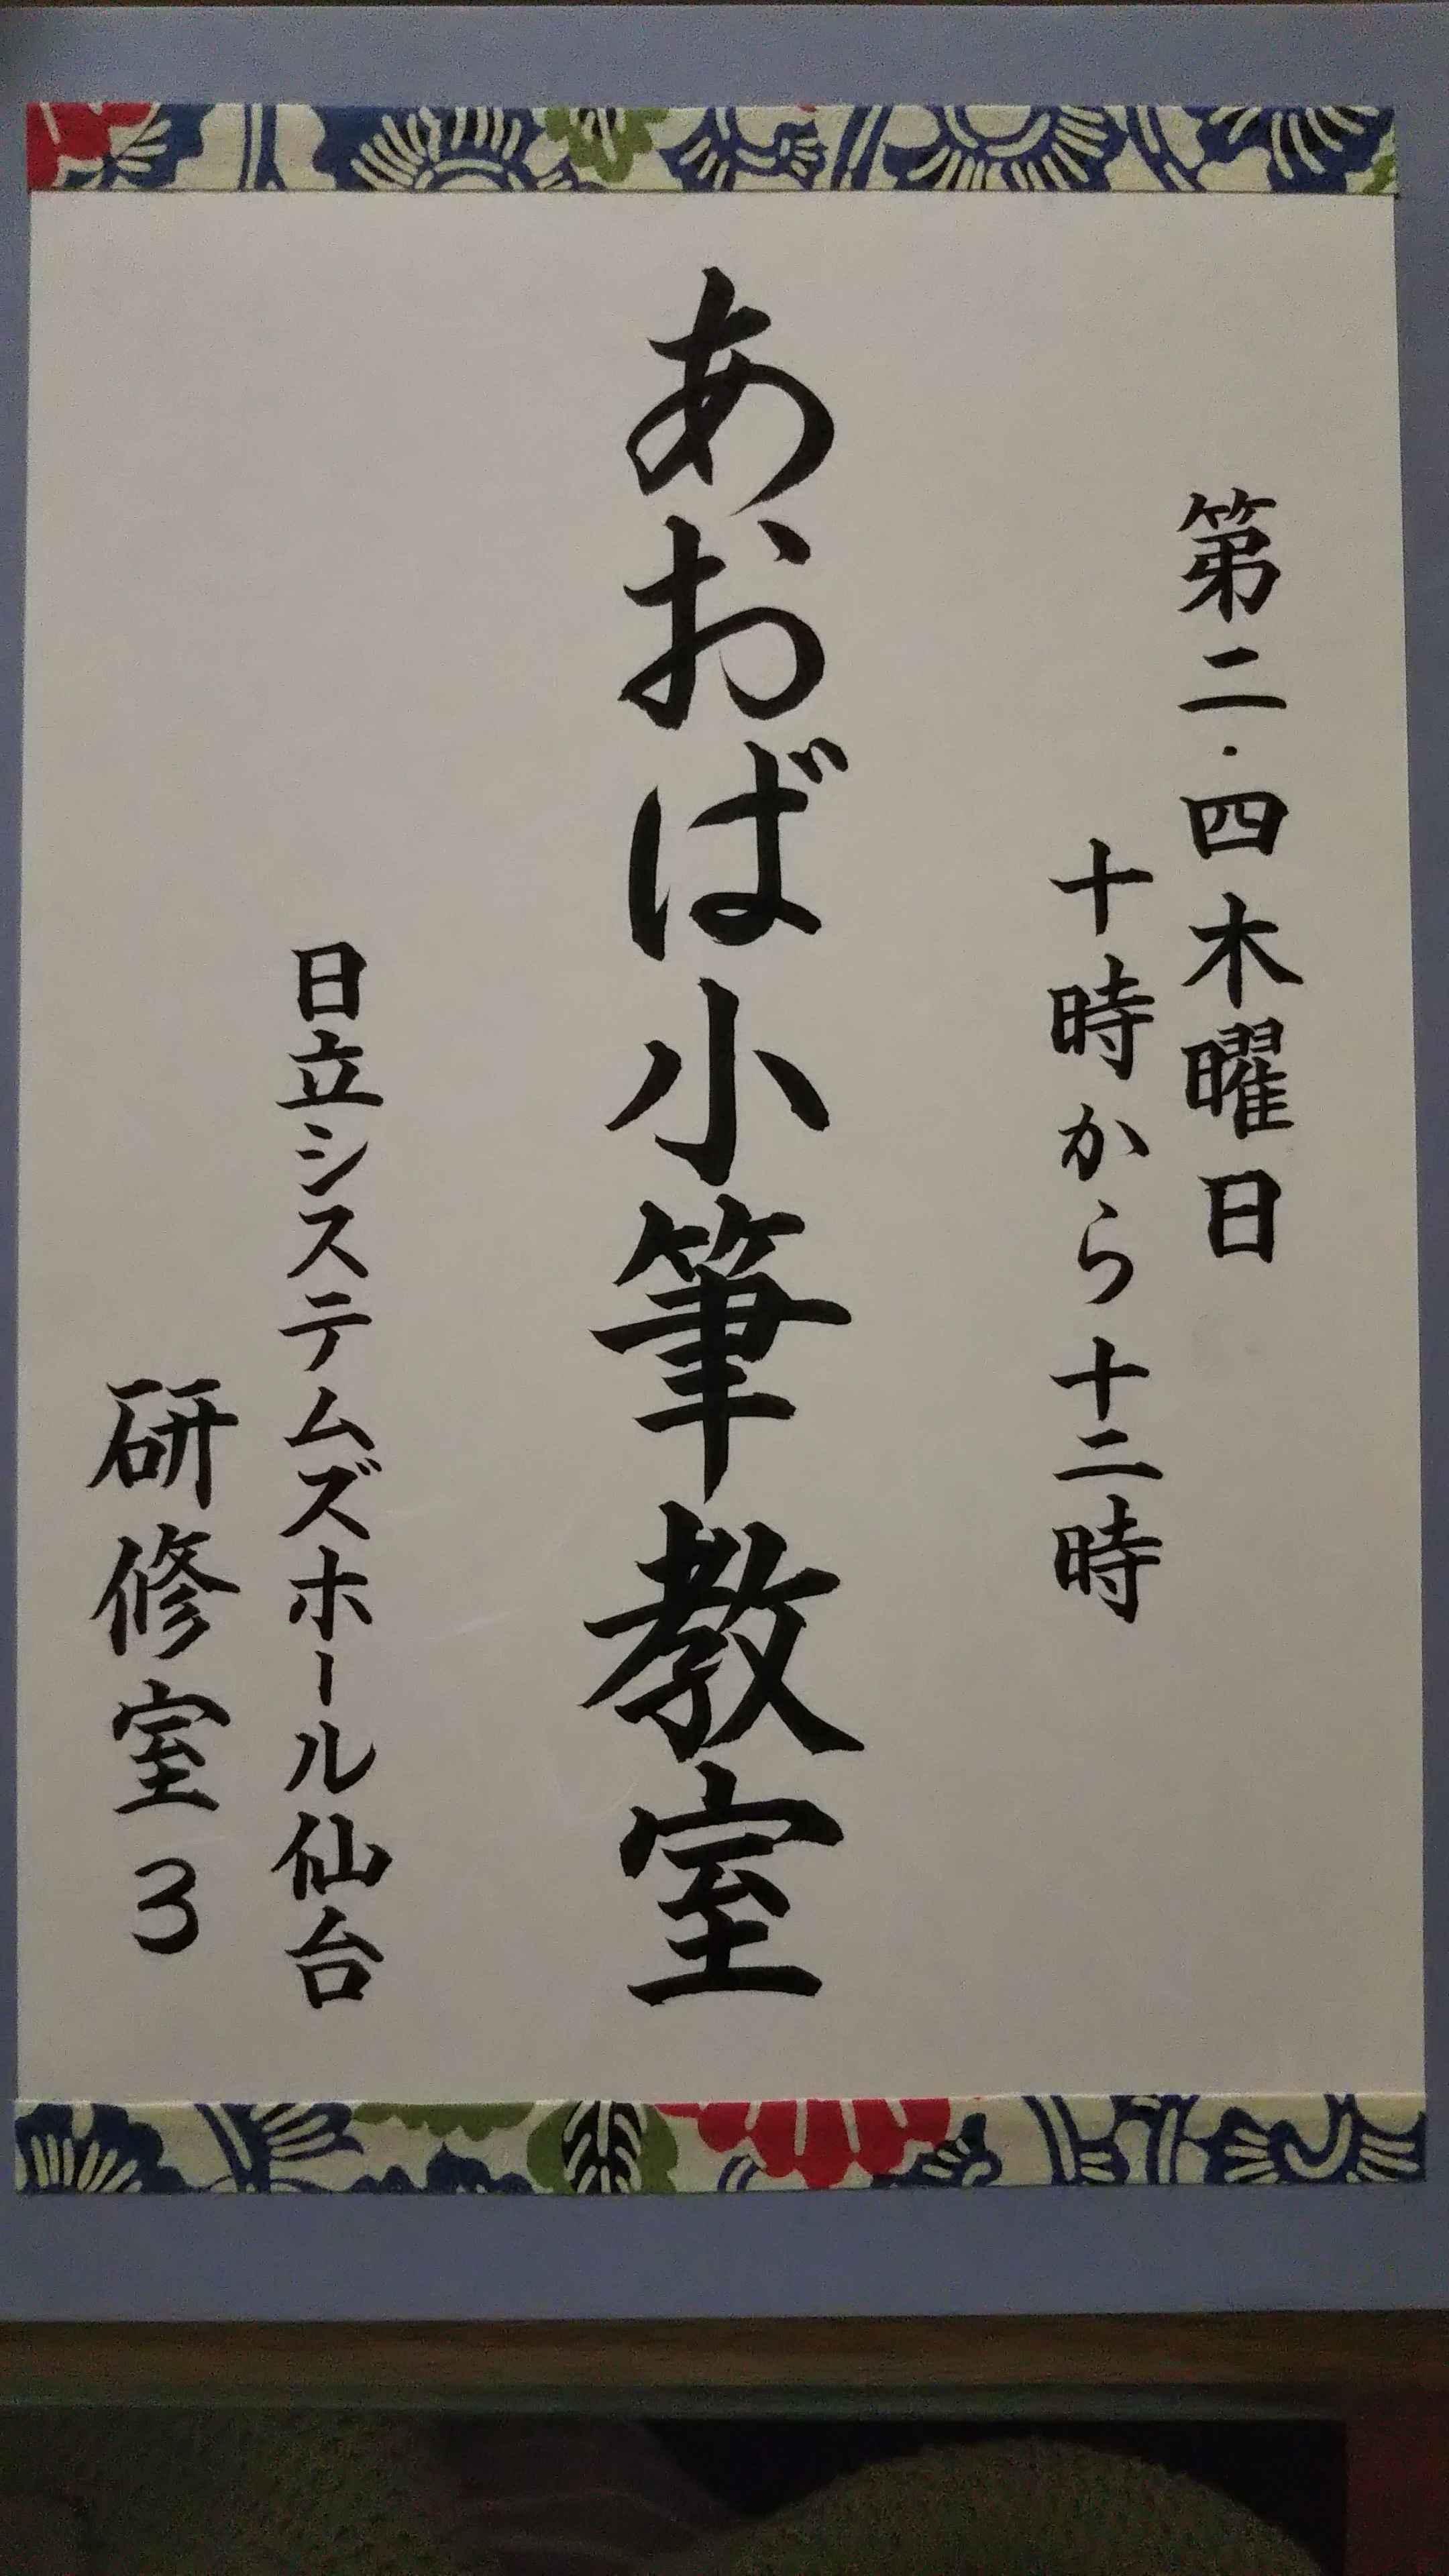 第二・四木曜日
十時から十二時
あおば小筆教室
日立システムズホール仙台
研修室3